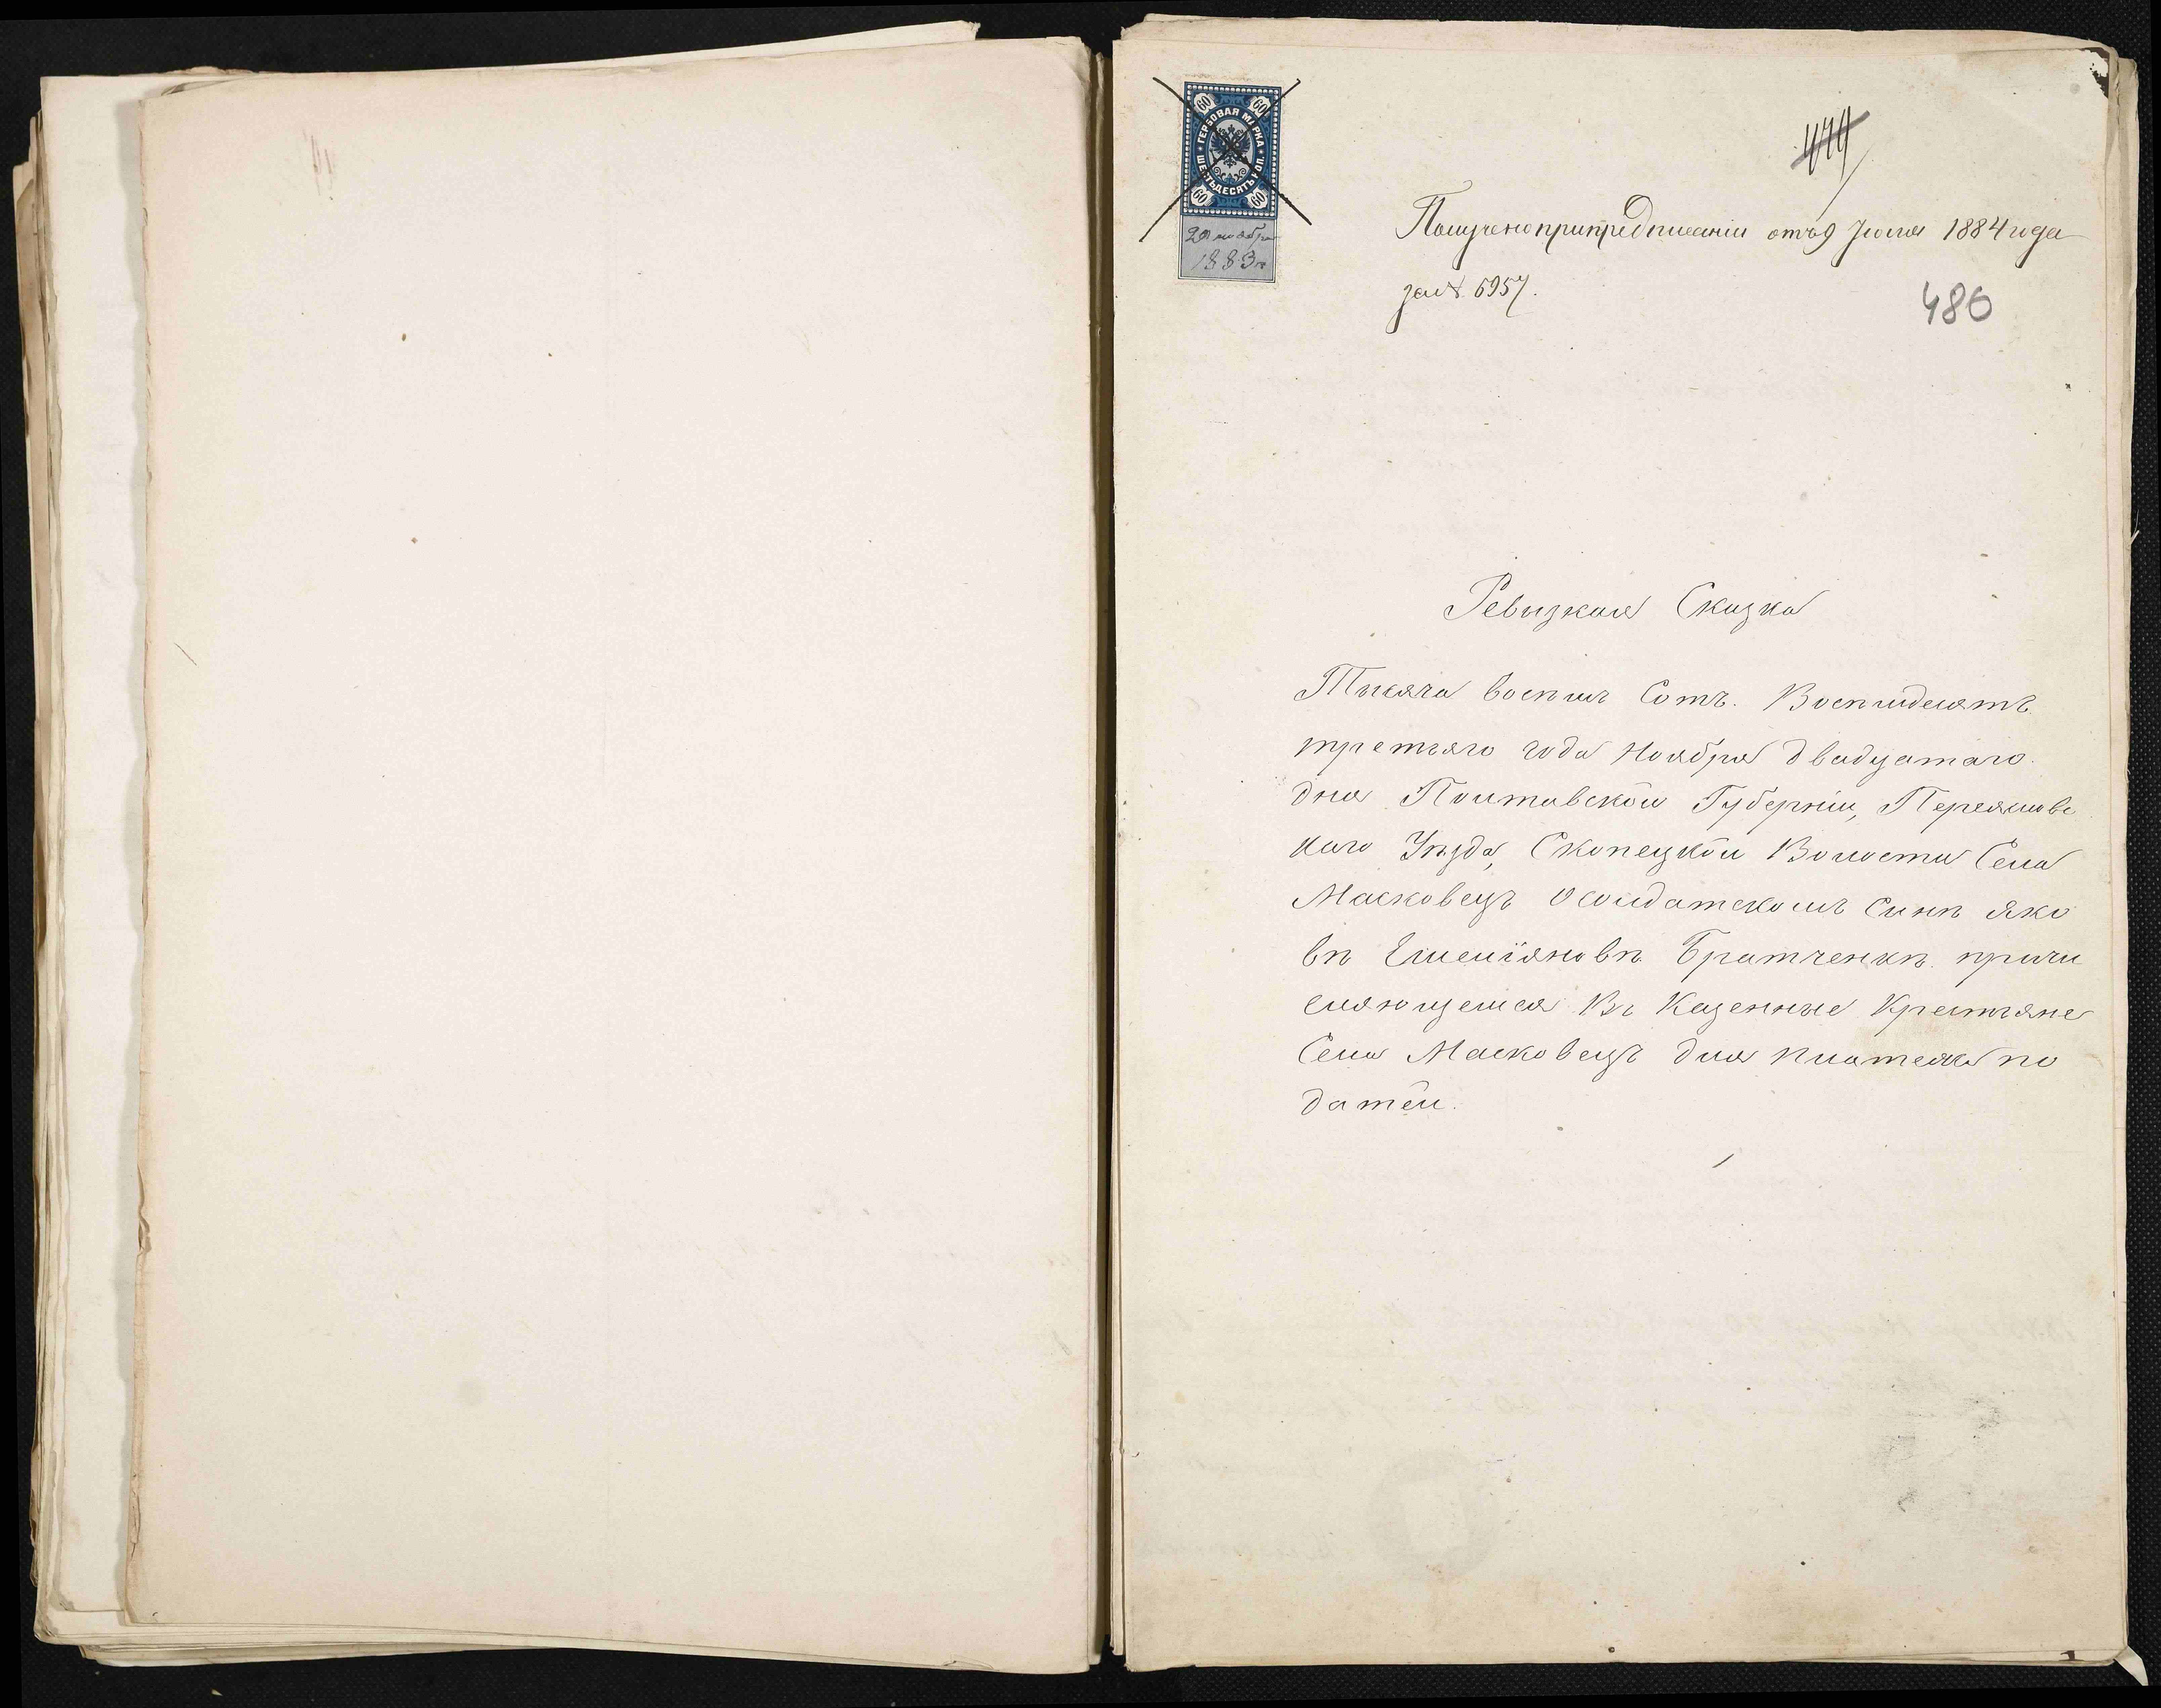 60 60
ГЕРБОВАЯ МАРКА
ШЕСТЬДЕСЯТЪ КОП.
60 60
20 ноября
1883 г
479
Получено припредписаніи отъ 9 Іюля 1884 года
за № 5957.
480
Ревизкая Сказка
Тысяча восемъ Сотъ. Восемдесятъ
третьяго года Ноября двадцатаго.
дня Полтавской Губерніи, Переяслове
каго Уѣзда, Скопецкой Волости Села
Масковецъ осолдатскомъ Синѣ Яко
вѣ Емеліяновѣ Братченкѣ причи
сляющемся Въ Казенные Крестьяне
Села Масковецъ для платежа по
датей.